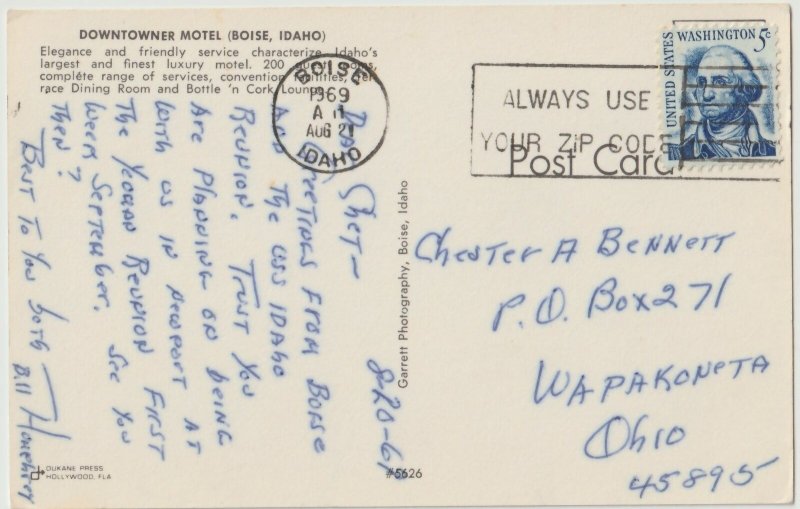 DOWNTOWNER MOTEL (BOISE, IDAHO)
Elegance and friendly service characterize Idaho's
largest and finest luxury motel. 200 guest rooms,
complete range of services, convention facilities, Ter-
race Dining Room and Bottle 'n Cork Lounge.
BOISE
1969
AUG 21
IDAHO
ALWAYS USE
YOUR ZIP CODE
UNITED STATES
WASHINGTON 5c
Post Card
8-20-69
Dear Chet—
Greetings from Boise
and the USS Idaho
Reunion. Trust you
are planning on being
with us in Newport at
the Yeoman Reunion first
week September. See you
then?
Best to you both
Bill Humphrey
Chester A Bennett
P.O. Box 271
Wapakoneta
Ohio
45895
Garrett Photography, Boise, Idaho
DUKANE PRESS
HOLLYWOOD, FLA
#5626